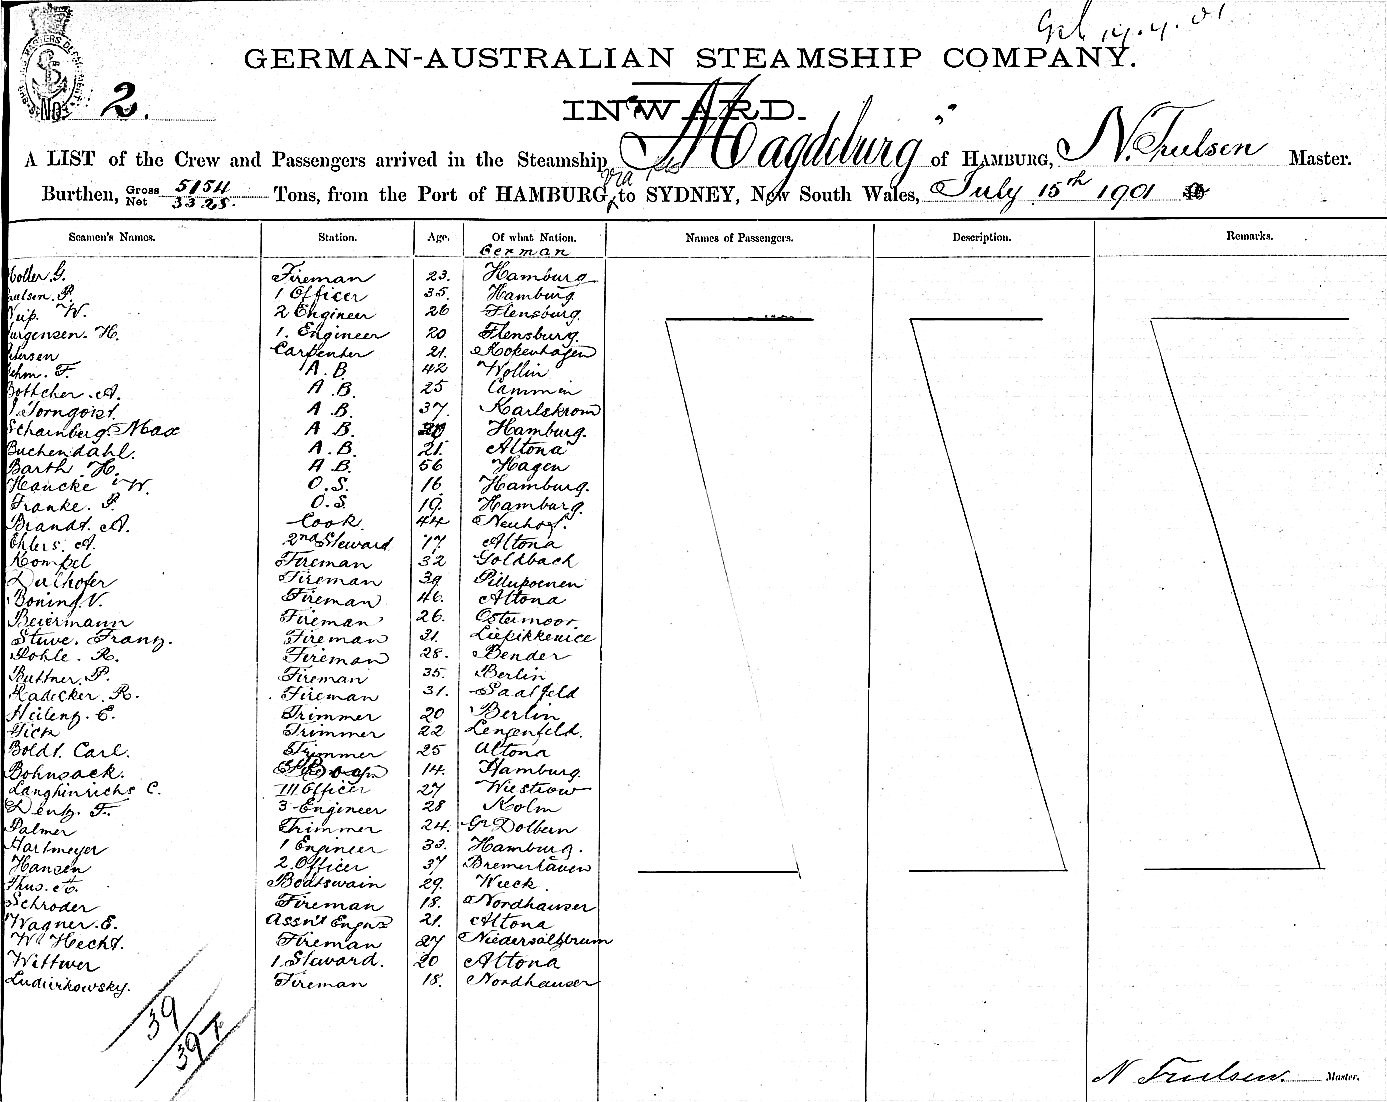 19.7.01
GERMAN-AUSTRALIAN STEAMSHIP COMPANY.
No. 2.
INWARD.
A LIST of the Crew and Passengers arrived in the Steamship SS "Magdeburg" of HAMBURG, N. Trulsen Master.
Burthen, Gross 5154 Net 3325. Tons, from the Port of HAMBURG, via to SYDNEY, New South Wales, July 15th 1901
Seamen's Names. Station. Age. Of what Nation. Names of Passengers. Description. Remarks.
German
G. Fireman 23. Hamburg
P. 1 Officer 35. Hamburg
W. 2 Engineer 26 Flensburg.
H. 1. Engineer 20 Flensburg.
Carpenter 21. Kopenhagen
F. A.B. 42 Wollin
Bottcher. A. A.B. 25 Cammin
Tornqvist. A.B. 37. Karlskrom
Scharnberg. Max A B. Hamburg.
Buchendahl. A.B. 21. Altona
Barth. H. A B. 56 Hagen
Hancke W. O.S. 16 Hamburg.
Franke. P. O.S. 19. Hamburg.
Brandt. A. Cook. 44 Neuhof.
Ehlers. A. 2nd Steward 17. Altona
Kompel Fireman 32 Goldbach
Fireman 39 Pillupoenen
Boning. V. Fireman 46. Altona
Beiermann Fireman 26. Ostermoor.
Stuwe. Franz. Fireman 31. Liepikkenice
Pohle. R. Fireman 28. Bender
Buttner. P. Fireman 35. Berlin
Radecker. R. Fireman 31. Saalfeld
Heilenz. E. Trimmer 20 Berlin
Trimmer 22 Lengenfeld.
Boldt. Carl. Trimmer 25 Altona
Bohnsack. Boy 14. Hamburg.
Langhinrichs C. III Officer 27 Wiestrow
Denz. F. 3 Engineer 28 Kolm
Palmer Trimmer 24. Gr Dolbern
Hartmeyer 1 Engineer 33. Hamburg.
Hansen 2. Officer 37 Bremerhaven
Thus. A. Boatswain 29. Wieck.
Schroder Fireman 18. Nordhauser
Wagner. E. Assn't Engnr 21. Altona
Hecht. Fireman 27 Niedersalzbrum
Wittwer 1 Steward. 20 Altona
Ludierkowsky. Fireman 18. Nordhauser
39
39
N Trulsen. Master.